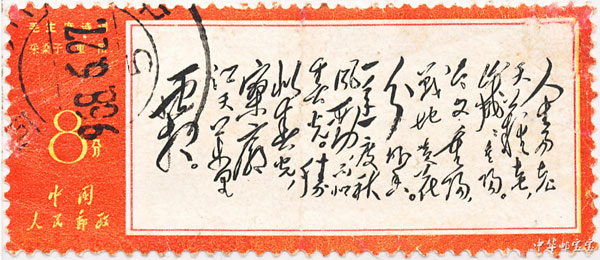 毛主席诗词
采桑子 重阳
8分
中国
人民邮政
人生易老
天难老,
岁岁重阳。
今又重阳,
战地黄花
分外香。
一年一度秋
风劲,不似
春光。胜
似春光,
寥廓
江天万里
霜。